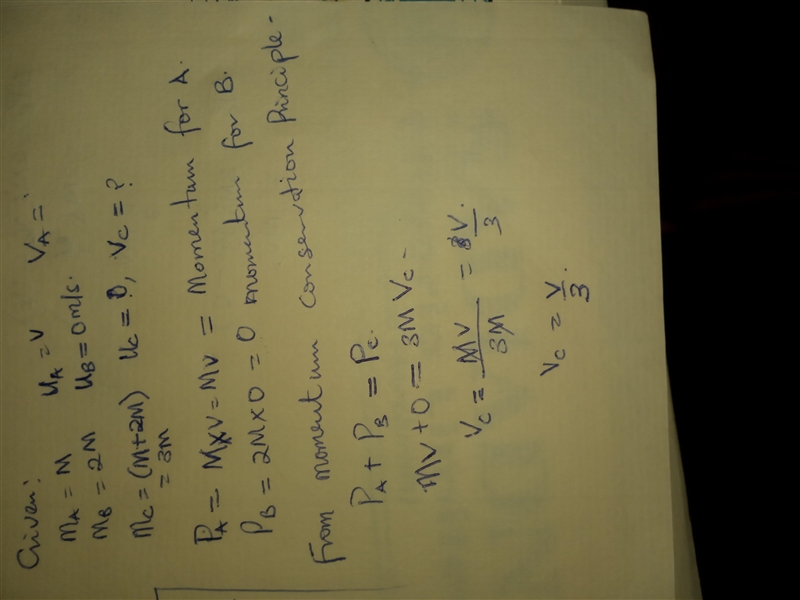 Given:
MA = M UA = V VA = 
MB = 2M UB = 0 m/s.
MC = (M+2M) UC = 0, VC = ?
= 3M
PA = M×V = MV = Momentum for A.
PB = 2M×0 = 0 momentum for B.
From momentum conservation Principle-
PA + PB = PC.
MV + 0 = 3M VC -
VC = MV/3M = V/3.
VC = V/3.